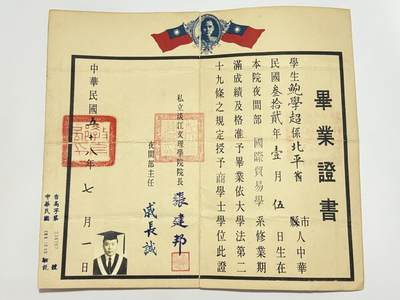 畢業證書
學生鮑學超係北平省市縣人中華
民國叁拾貳年壹月伍日生在
本院夜間部國際貿易學系修業期
滿成績及格准予畢業依大學法第二
十九條之規定授予商學士學位此證
私立淡江文理學院院長張建邦
夜間部主任戚長誠
中華民國五十八年七月一日